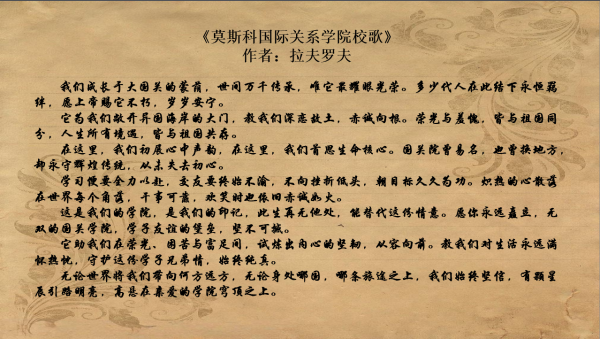 《莫斯科国际关系学院校歌》
作者：拉夫罗夫
我们成长于大国关的荣荫，世间万千传承，唯它最耀眼光荣。多少代人在此结下永恒羁
绊，愿上帝赐它不朽，岁岁安宁。
它为我们敞开异国海岸的大门，教我们深恋故土，赤诚向根。荣光与羞愧，皆与祖国同
分，人生所有境遇，皆与祖国共存。
在这里，我们初展心中声韵，在这里，我们首思生命核心。国关院曾易名，也曾换地方，
却永守辉煌传统，从未失去初心。
学习便要全力以赴，交友要终始不渝，不向挫折低头，朝目标久久为功。炽热的心散落
在世界每个角落，干事可靠，欢笑时也依旧赤诚如火。
这是我们的学院，是我们的印记，此生再无他处，能替代这份情意。愿你永远矗立，无
双的国关学院，学子友谊的堡垒，坚不可摧。
它助我们在荣光、困苦与富足间，试炼出内心的坚韧，从容向前。教我们对生活永远满
怀热忱，守护这份学子兄弟情，始终纯真。
无论世界将我们带向何方远方，无论身处哪国，哪条旅途之上，我们始终坚信，有颗星
辰引路明亮，高悬在亲爱的学院穹顶之上。